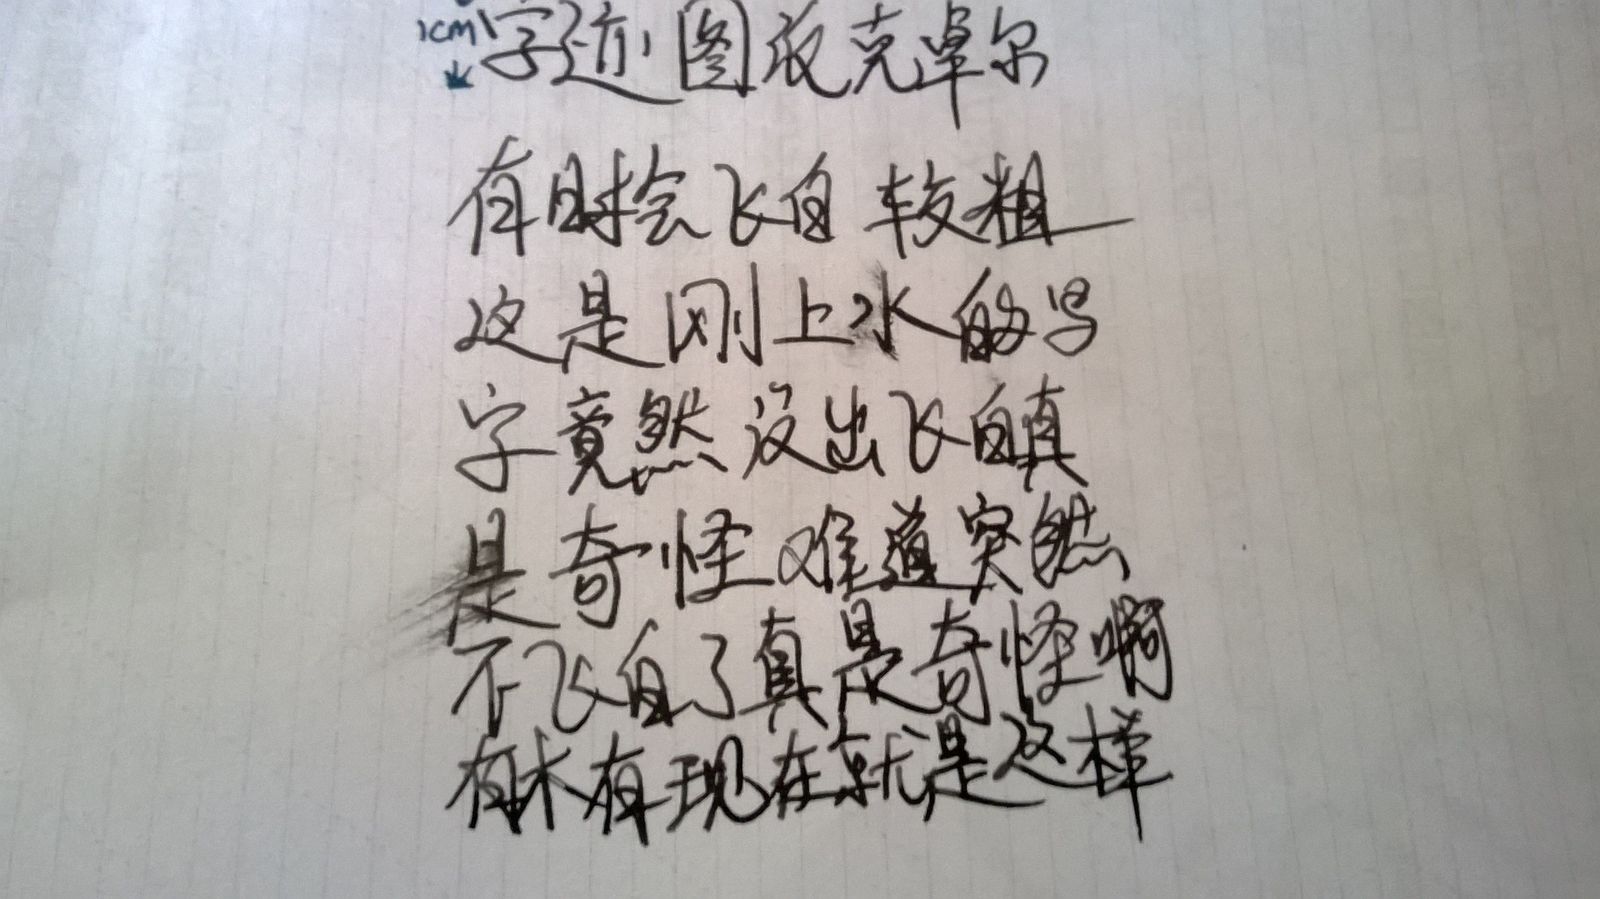 1cm 字迹图派克卓尔
有时会飞白 较粗
这是刚上水的写
字竟然没出飞白真
是奇怪难道突然
不飞白了真是奇怪啊
有木有现在就是这样